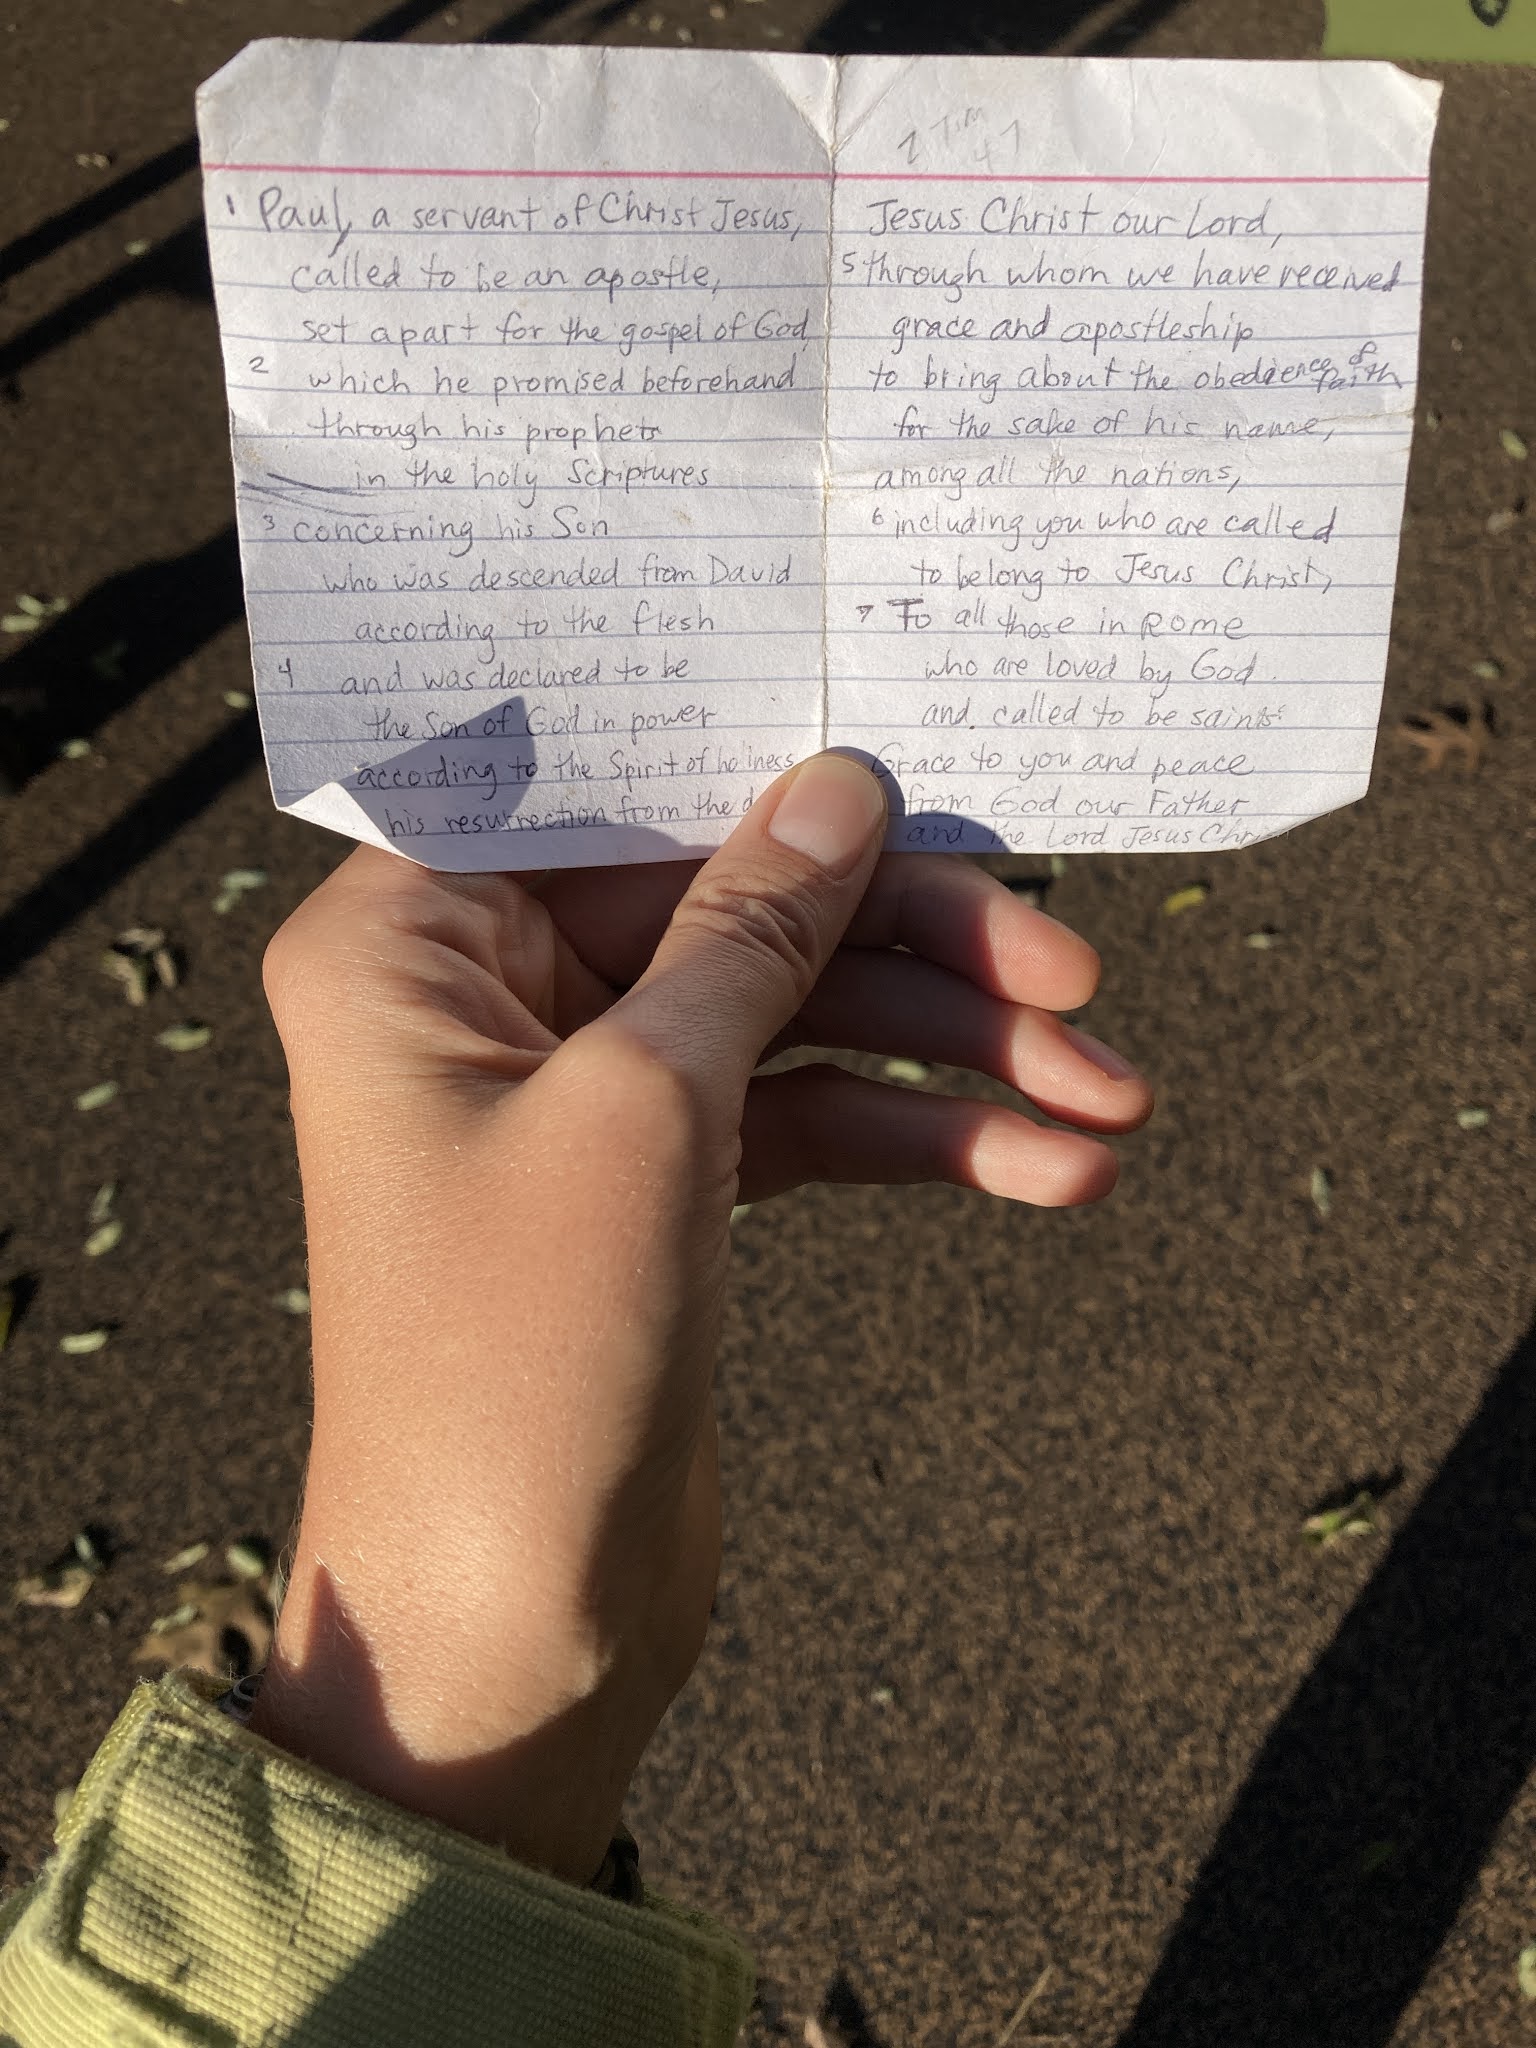 1 Paul, a servant of Christ Jesus,
called to be an apostle,
set apart for the gospel of God,
2 which he promised beforehand
through his prophets
in the holy Scriptures
3 concerning his Son
who was descended from David
according to the flesh
4 and was declared to be
the Son of God in power
according to the Spirit of holiness
his resurrection from the d
Tim
4 7
Jesus Christ our Lord,
5 through whom we have received
grace and apostleship
to bring about the obedience of faith
for the sake of his name,
among all the nations,
6 including you who are called
to belong to Jesus Christ,
7 To all those in Rome
who are loved by God
and called to be saints:
Grace to you and peace
from God our Father
and the Lord Jesus Chri